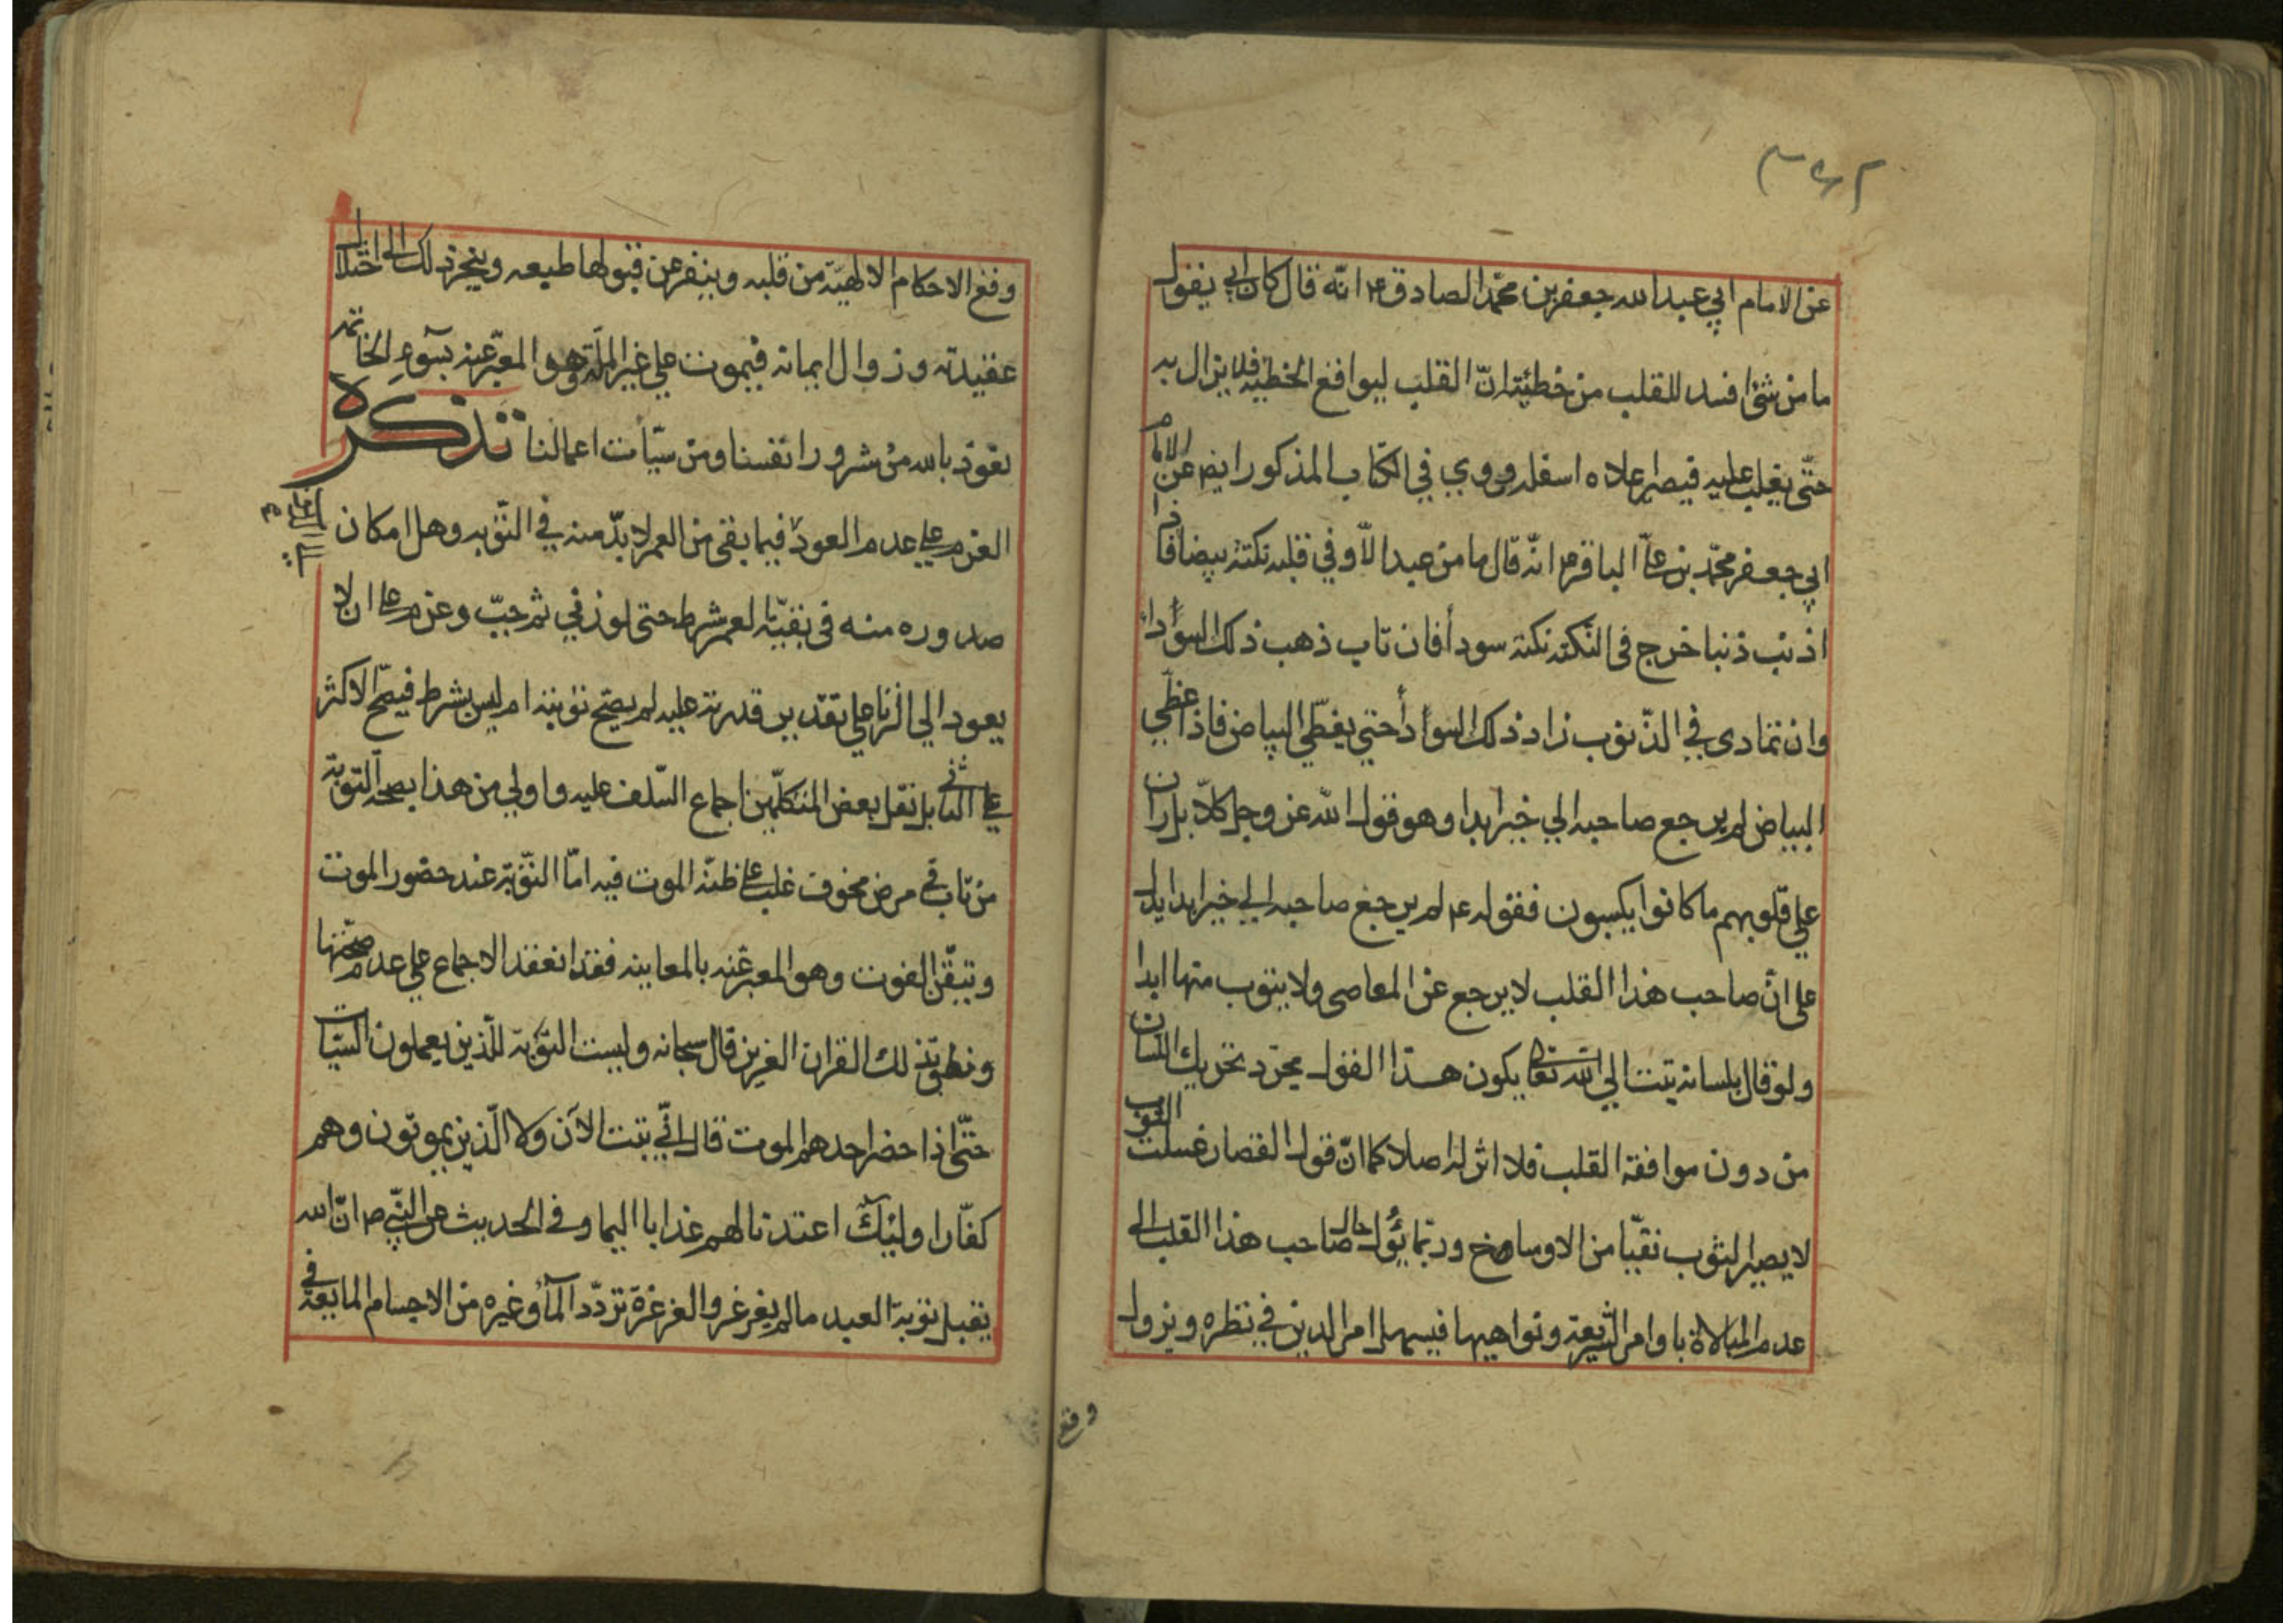 عن الامام ابي عبد الله جعفر بن محمّد الصادق ع انّه قال كان ابي يقول
ما من شئ افسد للقلب من خطيئته انّ القلب ليواقع الخطيئه فلا يزال به
حتّى يغلب عليه فيصير اعلاه اسفله وروي في الكتاب المذكور ايضا عن الامام
ابي جعفر محمّد بن علي الباقر ع انّه قال ما من عبد الاّ وفي قلبه نكتة بيضا فاذا
اذنب ذنبا خرج في النكته نكتة سودأ فان تاب ذهب ذلك السوادأ
وان تمادى في الذّنوب زاد ذلك السوادأ حتي يغطّي البياض فاذا غطّي
البياض لم يرجع صاحبه الي خير ابدا وهو قول الله عز وجل كلاّ بل ران
علي قلوبهم ما كانوا يكسبون فقوله ع لم يرجع صاحبه الي خير ابدا يدل
على انّ صاحب هذا القلب لا يرجع عن المعاصى ولا يتوب منها ابدا
ولو قال بلسانه تبت الي الله تعالى يكون هذا القول مجرّد تحريك اللسان
من دون موافقة القلب فلا اثر له اصلا كما انّ قول القصار غسلت الثوب
لا يصير الثوب نقيّا من الاوساخ وربّما يؤل حال صاحب هذا القلب الى
عدم المبالاة باوامر الشريعة ونواهيها فيسهل امر الدين في نظره ويزول
وقع
وقع الاحكام الالهيّة من قلبه وينفر عن قبولها طبعه وينجر ذلك الى اختلال
عقيدته وزوال ايمانه فيموت علي غير الملّة وهو المعبّر عنه بسوء الخاتمه
نعوذ بالله من شرور انفسنا ومن سيّأت اعمالنا تذكرة
العزم على عدم العود فيما بقي من العمر لا بدّ منه في التّوبه وهل امكان
صدوره منه في بقيّة العمر شرط حتى لو زني ثم جبّ وعزم على ان لا
يعود الي الزنا علي تقدير قدرته عليه لم يصح توبته ام ليس بشرط فيصحّ الاكثر
علي الثاني بل نقل بعض المتكلّمين اجماع السّلف عليه واولي من هذا بصحّة التوبة
من تاب في مرض مخوف غلب على ظنّه الموت فيه امّا التّوبة عند حضور الموت
وتيقّن الفوت وهو المعبر عنه بالمعاينه فقد انعقد الاجماع علي عدم صحّتها
ونطق بذلك القران العزيز قال سبحانه وليست التوبة للّذين يعملون السيّات
حتّى اذا حضر احدهم الموت قال انّي تبت الآن ولا الّذين يموتون وهم
كفّارا ولئك اعتدنا لهم عذابا اليما وفي الحديث عن النّبي ص انّ الله
يقبل توبة العبد ما لم يغرغر والغرغرة تردّد المآء وغيره من الاجسام المايعة في